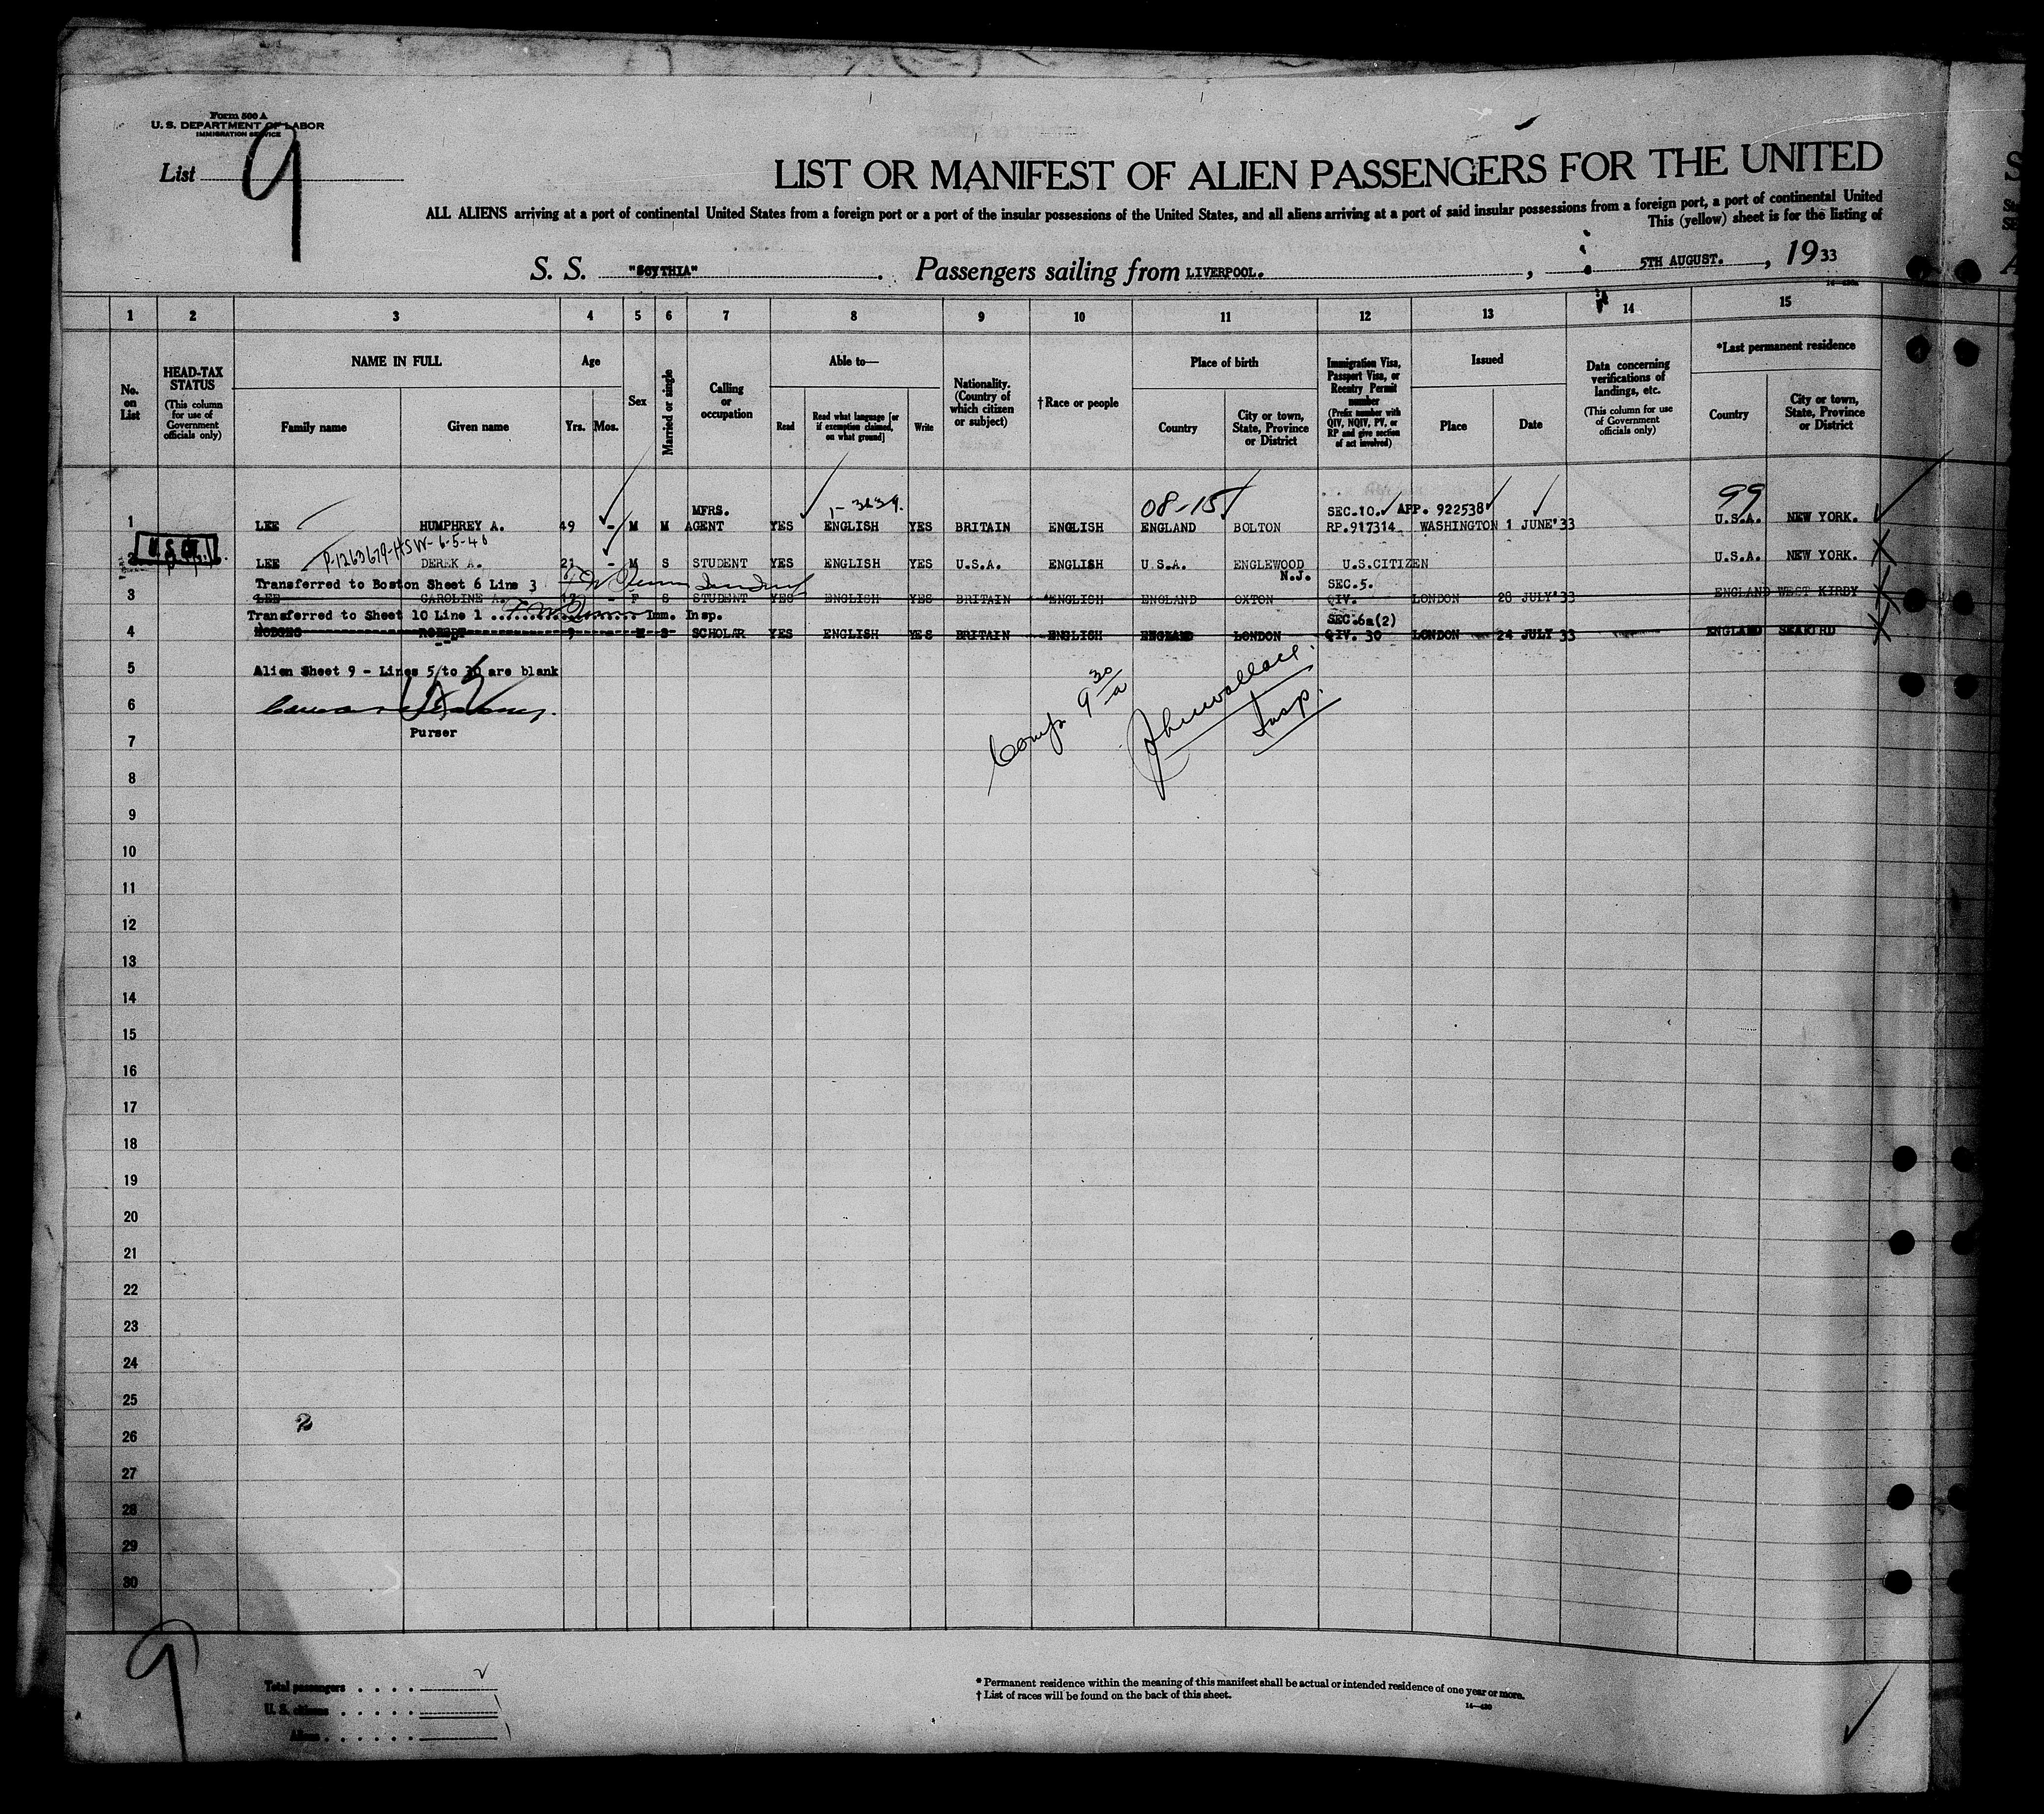 Form 500 A
U. S. DEPARTMENT OF LABOR
IMMIGRATION SERVICE
List 9
LIST OR MANIFEST OF ALIEN PASSENGERS FOR THE UNITED
ALL ALIENS arriving at a port of continental United States from a foreign port or a port of the insular possessions of the United States, and all aliens arriving at a port of said insular possessions from a foreign port, a port of continental United
This (yellow) sheet is for the listing of
S. S. "SCYTHIA". Passengers sailing from LIVERPOOL. , 5TH AUGUST. , 1933
1 2 3 4 5 6 7 8 9 10 11 12 13 14 15
No. on List
HEAD-TAX STATUS (This column for use of Government officials only)
NAME IN FULL
Family name
Given name
Age
Yrs. Mos.
Sex
Married or single
Calling or occupation
Able to—
Read
Read what language [or if exemption claimed, on what ground]
Write
Nationality. (Country of which citizen or subject)
†Race or people
Place of birth
Country
City or town, State, Province or District
Immigration Visa, Passport Visa, or Reentry Permit number (Prefix number with QIV, NQIV, PV, or RP and give section of act involved)
Issued
Place
Date
Data concerning verifications of landings, etc. (This column for use of Government officials only)
*Last permanent residence
Country
City or town, State, Province or District
MFRS. 1-3239. 08-15 SEC.10. APP. 922538 99
1 LEE HUMPHREY A. 49 - M M AGENT YES ENGLISH YES BRITAIN ENGLISH ENGLAND BOLTON RP.917314 WASHINGTON 1 JUNE'33 U.S.A. NEW YORK.
P-1263679-HSW-6-5-40
2 LEE DEREK A. 21 - M S STUDENT YES ENGLISH YES U.S.A. ENGLISH U.S.A. ENGLEWOOD N.J. U.S.CITIZEN U.S.A. NEW YORK.
Transferred to Boston Sheet 6 Line 3 SEC.5.
3 LEE CAROLINE A. 17 - F S STUDENT YES ENGLISH YES BRITAIN ENGLISH ENGLAND OXTON QIV. LONDON 28 JULY'33 ENGLAND WEST KIRBY
Transferred to Sheet 10 Line 1 Imm. Insp. SEC.6a(2)
4 ROBERT 9 - M S SCHOLAR YES ENGLISH YES BRITAIN ENGLISH ENGLAND LONDON QIV. 30 LONDON 24 JULY 33 ENGLAND
5 Alien Sheet 9 - Lines 5 to 30 are blank
6
Purser
7
Comp 9 30 a
Insp.
8
9
10
11
12
13
14
15
16
17
18
19
20
21
22
23
24
25
26
27
28
29
30
9
Total passengers
U. S. citizens
Aliens
* Permanent residence within the meaning of this manifest shall be actual or intended residence of one year or more.
† List of races will be found on the back of this sheet.
14—430